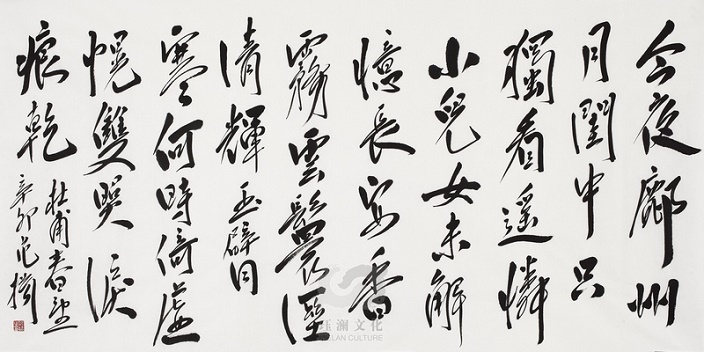 今夜鄜州
月閨中只
獨看遥憐
小兒女未解
憶長安香
霧雲鬟溼
清輝玉臂
寒何時倚虛
幌雙照淚
痕乾
杜甫春望
辛卯
澜文化
CULTURE